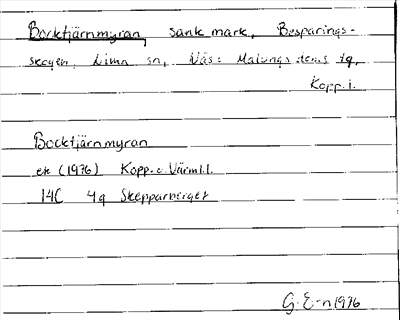 Bocktjärnmyran, sank mark, Besparings-
skogen, Lima sn, Väs: Malungs tg,
Kopp. l.
Bocktjärnmyran
ek (1976) Kopp. o. Värml. l.
14C 4g Skepparberget
G. E-n 1976